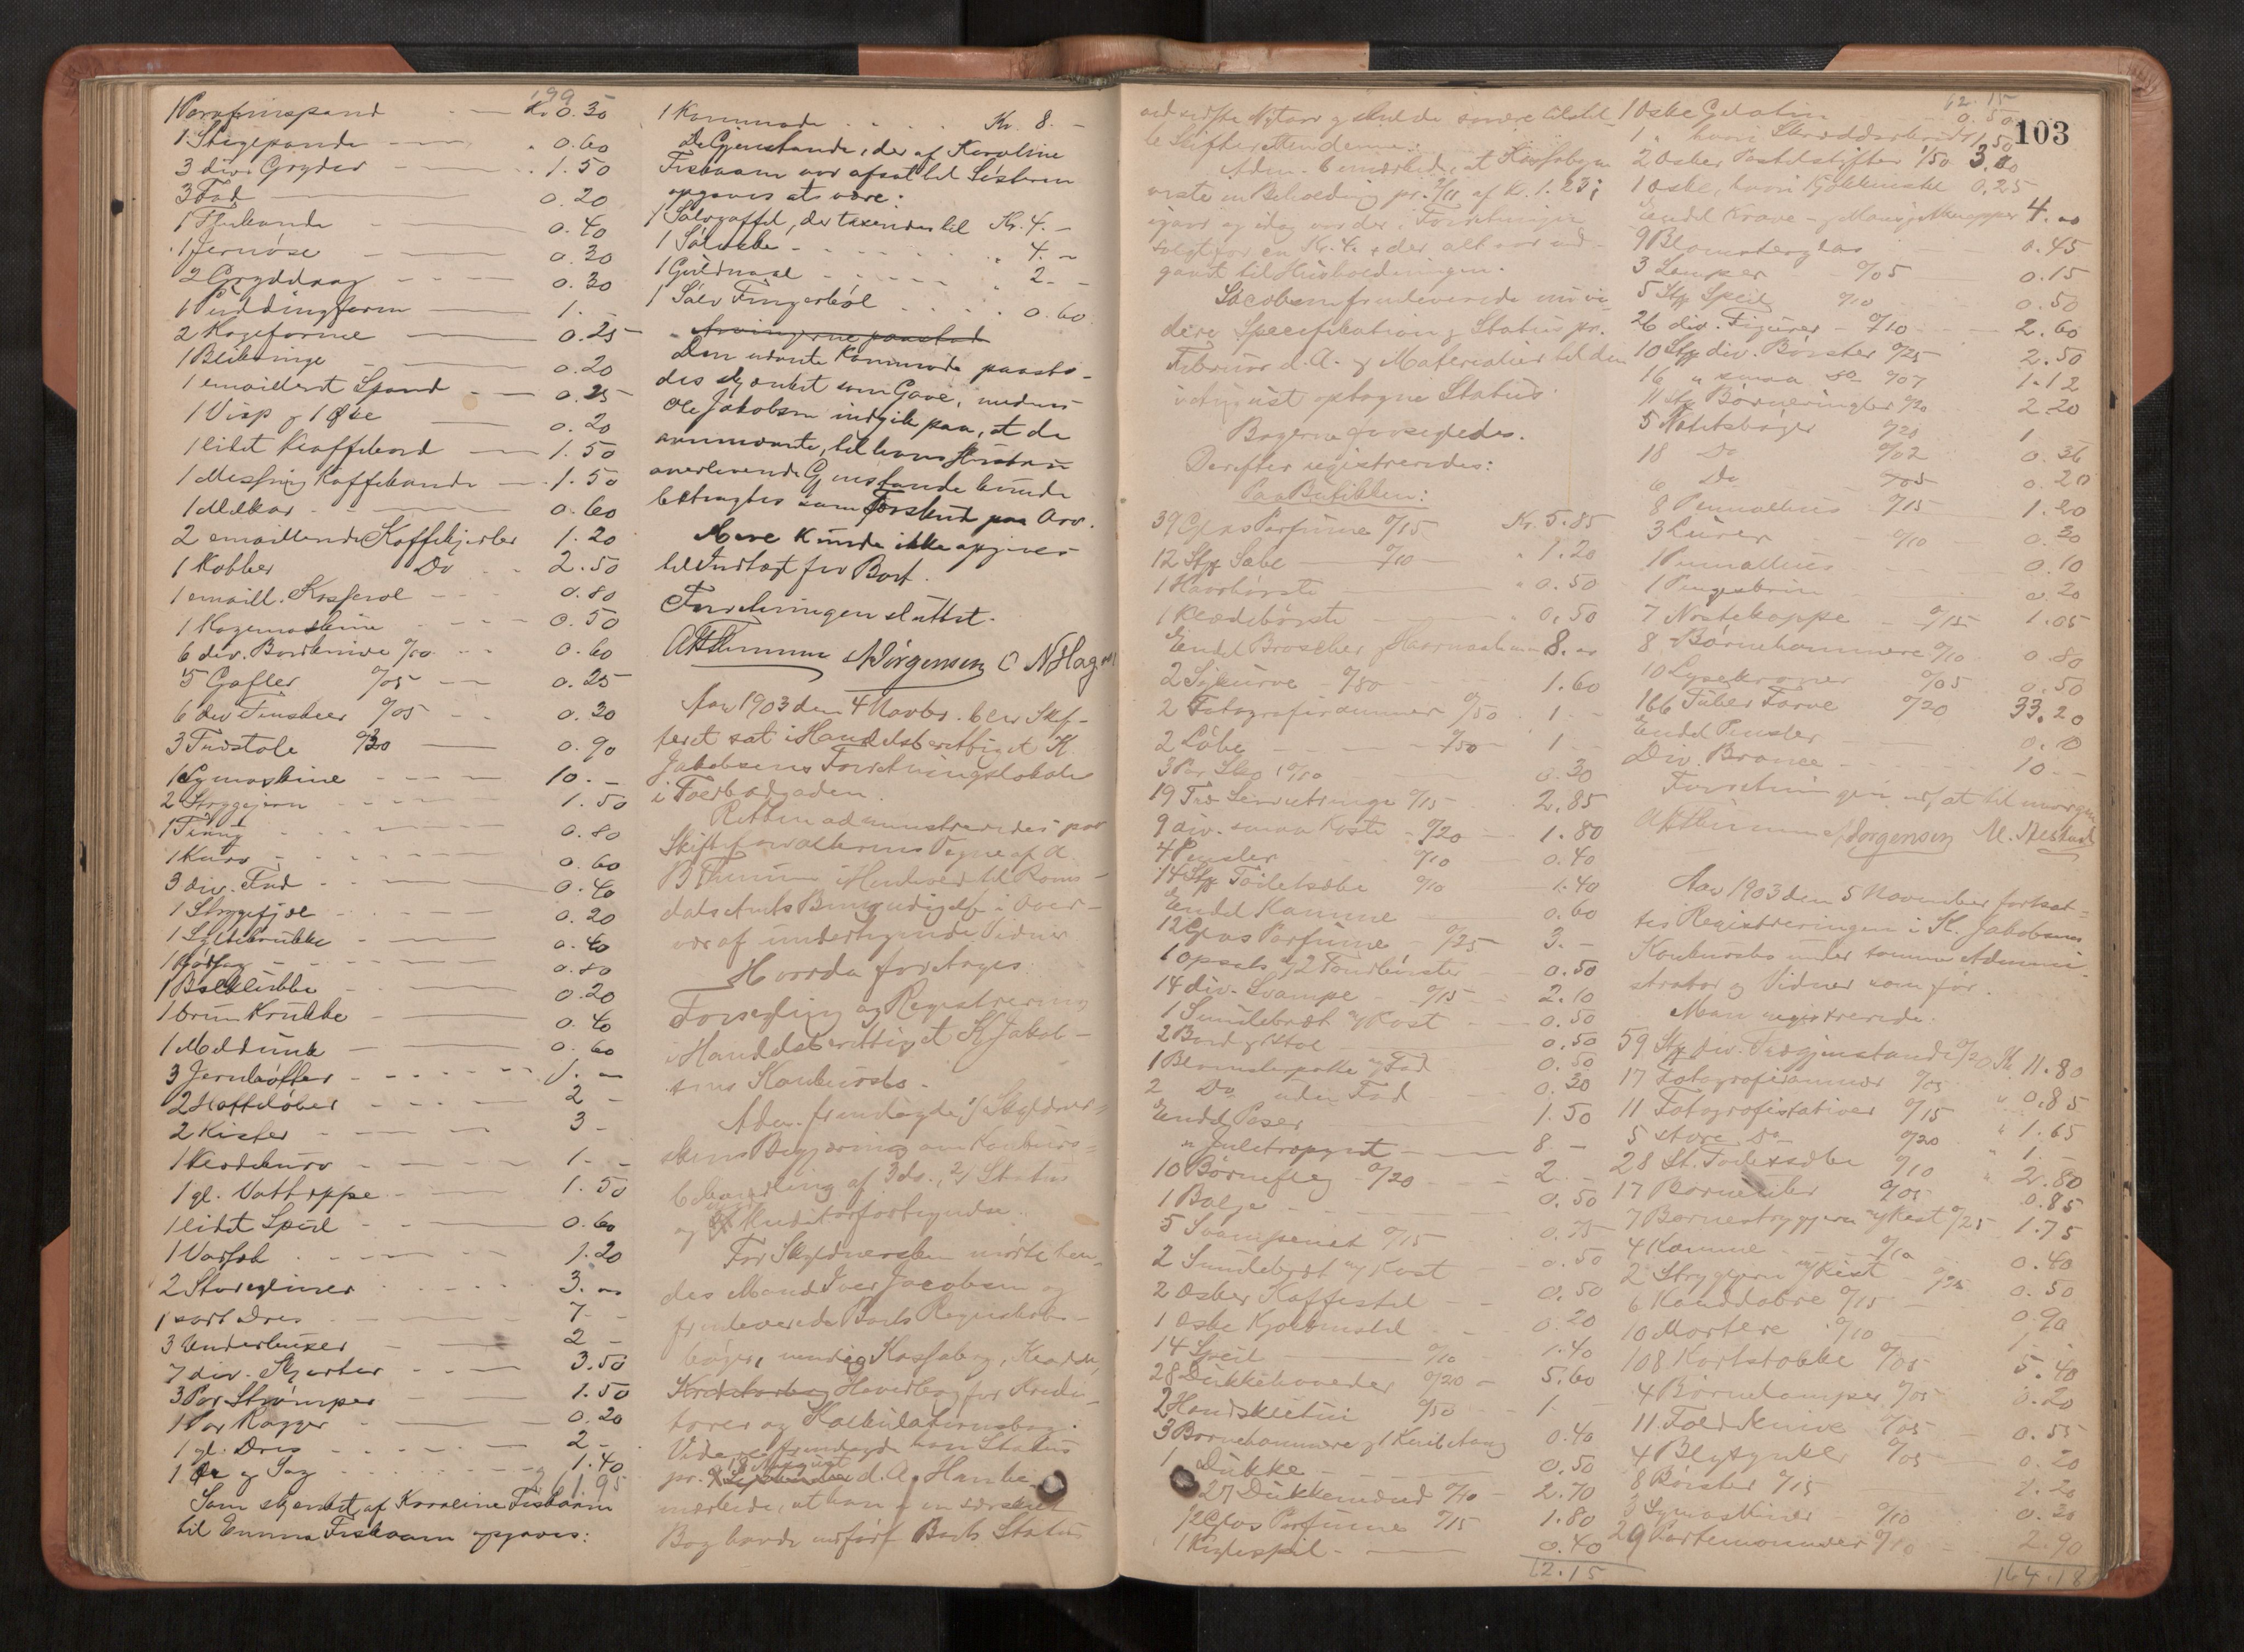 199
1 Parafinspand Kr 0.30
1 Stegepande 0.60
3 div. Gryder 1.50
3 Fad 0.20
1 Thekande 0.40
1 Jernöse 0.20
2 Grydelaag 0.30
1 Puddingform 1.
2 Kageforme 0.25
1 Blikbringe 0.20
1 emailleret Spand 0.25
1 Visp og 1 Øse 0.20
1 lidet Kaffebord 1.50
1 Messing Kaffekande 1.50
1 Melkar 0.60
2 emaillerede Kaffekjedler 1.20
1 Kobber Do 2.50
1 emaill. Kasserol 0.80
1 Kogemaskine 0.50
6 div. Bordknive 0/10 0.60
5 Gafler 0/05 0.25
6 div Theskeer 0/05 0.30
3 Trestole 0/30 0.90
1 Symaskine 10.-
2 Strygejern 1.50
1 0.80
1 Kurv 0.60
3 div. Fad 0.40
1 Strygefjöl 0.20
1 Syltekrukke 0.40
1 0.80
1 0.20
1 brun Krukke 0.40
1 Meldunk 0.60
3 1.-
2 2 -
2 Kister 3 -
1 Klædekurv 1.-
1 gl. Vatteppe 1.50
1 lidet Speil 0.60
1 1.20
2 Storegarner 3.-
1 sort Dres 7 -
3 Underbuxer 2 -
7 div. Skjorter 3.50
3 Par Strömper 1.50
1 Par Ragger 0.20
1 gl. Dres 2 -
1 Øx og Sag 1.40
61.95
Som skjenket af Karoline Fiskaam
til Emma Fiskaam opgaves:
1 Kommode Kr. 8.-
De Gjenstande, der af Karoline
Fiskaam var afsat til Sösteren
opgaves at være:
1 Sölvgaffel, der taxeredes til Kr. 4.-
1 4.-
1 Guldnaal 2.-
1 Sölv Fingerböl 0.60
Arvingerne paastod
Den nævnte Kommode paasto-
des skjænket som Gave, medens
Ole Jakobsen indgik paa, at de
ovennævnte, til hans Hustru
overleverede Gjenstande kunde
betragtes som Forskud paa Arv.
Mere kunde ikke opgives
til Indtægt for Boet.
Forretningen sluttet.
A Thümme A Jörgensen O N Hagen
Aar 1903 den 4 Novbr. blev Skif-
teret sat i Handelsberettiget K.
Jakobsens Forretningslokale
i
Retten administreredes paa
Skifteforvalterens Vegne af A.
B Thümme i Henhold til Roms-
dals Amts Bemyndigelse i Over-
vær af undertegnede Vidner
Hvorda foretoges
Forsegling og Registrering
i Handelsberettiget K Jakob-
sens Konkursbo.
Adm. fremlagde 1/ Skyldner-
skens Begjæring om Konkurs-
behandling af 3 ds., 2/ Status
og Kreditorfortegnelse.
For Skyldnersken mødte hen-
des Mand Iver Jacobsen og
fremleverede Boets Regnskabs-
böger, nemlig Kassabog, Kladde,
Kreditorbog Hovedbog for Kredi-
torer og Kalkulationsbog.
Videre fremlagde han Status
18 August
pr. September d. A. Han be-
mærkede, at han i en særskilt
Bog havde indført Boets Status
ved sidste Nytaar og skulde senere tilstil-
le Skifteretten denne.
Adm. bemærkede, at Kassabogen
viste en Beholdning pr. 2/11 af Kr. 1.23;
igaar og idag var der i Forretningen
solgt for en Kr. 4. , der alt var ud-
gaaet til Husholdningen.
Jacobsen fremleverede end vi-
dere Specifikation og Status pr.
Februar d. A. og Materialier til den
i August optagne Status.
Bøgerne forsegledes.
Derefter registreredes:
Paa Butikken:
39 Glas Parfüme 0/15 Kr. 5.85
12 Stk Sæbe 0/10 1.20
1 Haarbörste 0.50
1 Klædebörste 0.50
Endel BrosCher og Haarnaale 8. -
2 Sykurve 0/80 1.60
2 Fotografirammer 0/50 1 -
2 Löbe 0/50 1 -
3 Par Sko 0/10 0.30
19 Træ Servietringe 0/15 2.85
9 div. smaa Koste 0/20 1.80
4 Pensler 0/10 0.40
14 Stk Toiletsæbe 0/10 1.40
Endel Kamme 0.60
12 Glas Parfüme 0/25 3.-
1 Opsats og 2 Tandbörster 0.50
14 div. Svampe 0/15 2.10
1 Smulebræt og Kost 0.50
2 Bord og Stol 0.50
1 Blomsterpotte og Fad 0.50
2 Do uden Fad 0.30
Endel Poser 1.50
" Juletrepynt 8 -
10 Börnefleg 0/20 2 -
1 Balje 0.50
5 Svampenet 0/15 0.75
2 Smulebræt og Kost 0.50
2 Æsker Kaffestel 0.50
1 Æske Kjökkenstel 0.20
14 Speil 0/10 1.40
28 Dukkehoveder 0/20 5.60
2 Handsketui 0/50 1 -
3 Börnehammere og 1 Knibetang 0.40
1 Dukke 0.50
27 Dukkehoved 0/10 2.70
12 Glas Parfüme 0/15 1.80
1 Keglespil 0.40
62.15
103
62.15
1 Æske Gelatin 0.50
1 " hvori 1.50
2 Æsker Pastelstifter 1/50 3.00
1 Æske, hvori Kjökkenske 0.25
Endel Krave- og Mansjetknapper 4.00
9 Blomsterglas 0.45
3 Lamper 0/05 0.15
5 Stk Speil 0/10 0.50
26 div. Figurer 0/10 2.60
10 Stk div. Börster 0/25 2.50
16 " smaa do 0/07 1.12
11 Stk Börneringler 0/20 2.20
5 Notitsböger 0/20 1
18 Do 0/02 0.36
6 Do 0/05 0.20
8 Pennalhus 0/15 1.20
3 Lurer 0/10 0.30
1 Pennalhus 0.10
1 Pengeskrin 0.20
7 0/15 1.05
8 Börnehammere 0/10 0.80
10 Lysekroner 0/05 0.50
166 Tuber Farve 0/20 33.20
Endel Pensler 0.10
Div. Bronce 10 -
Forretningen udsat til imorgen
A Thümme A Jörgensen M.
Aar 1903 den 5 November fortsat-
tes Registreringen i K. Jakobsens
Konkursbo under samme Admini-
strator og Vidner som för.
Man registrerede.
59 Stk div. Trægjenstande 0/20 Kr 11.80
17 Fotografirammer 0/05 0.85
11 Fotografistativer 0/15 1.65
5 større Do 0/20 1.-
28 St. Toiletsæbe 0/10 2.80
17 0/05 0.85
7 Börnestrygejern og Rist 0/25 1.75
4 Kamme 0/10 0.40
2 Strygejern og Rist 0/25 0.50
6 Kandelabre 0/15 0.90
10 Mortere 0/10 1.-
108 Kortstokke 0/05 5.40
4 Börnelamper 0/05 0.20
11 Foldeknive 0/05 0.55
4 0/05 0.20
8 Börster 0/15 1.20
3 Symaskiner 0/10 0.30
29 Portemonnaier 0/10 2.90
164.18